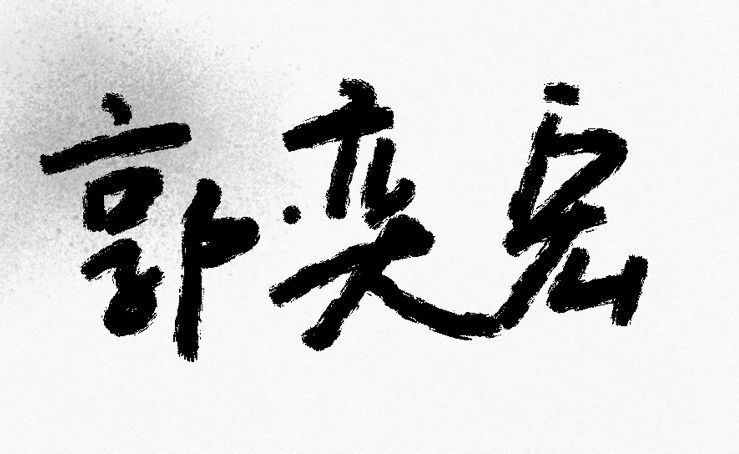 郭奕宏